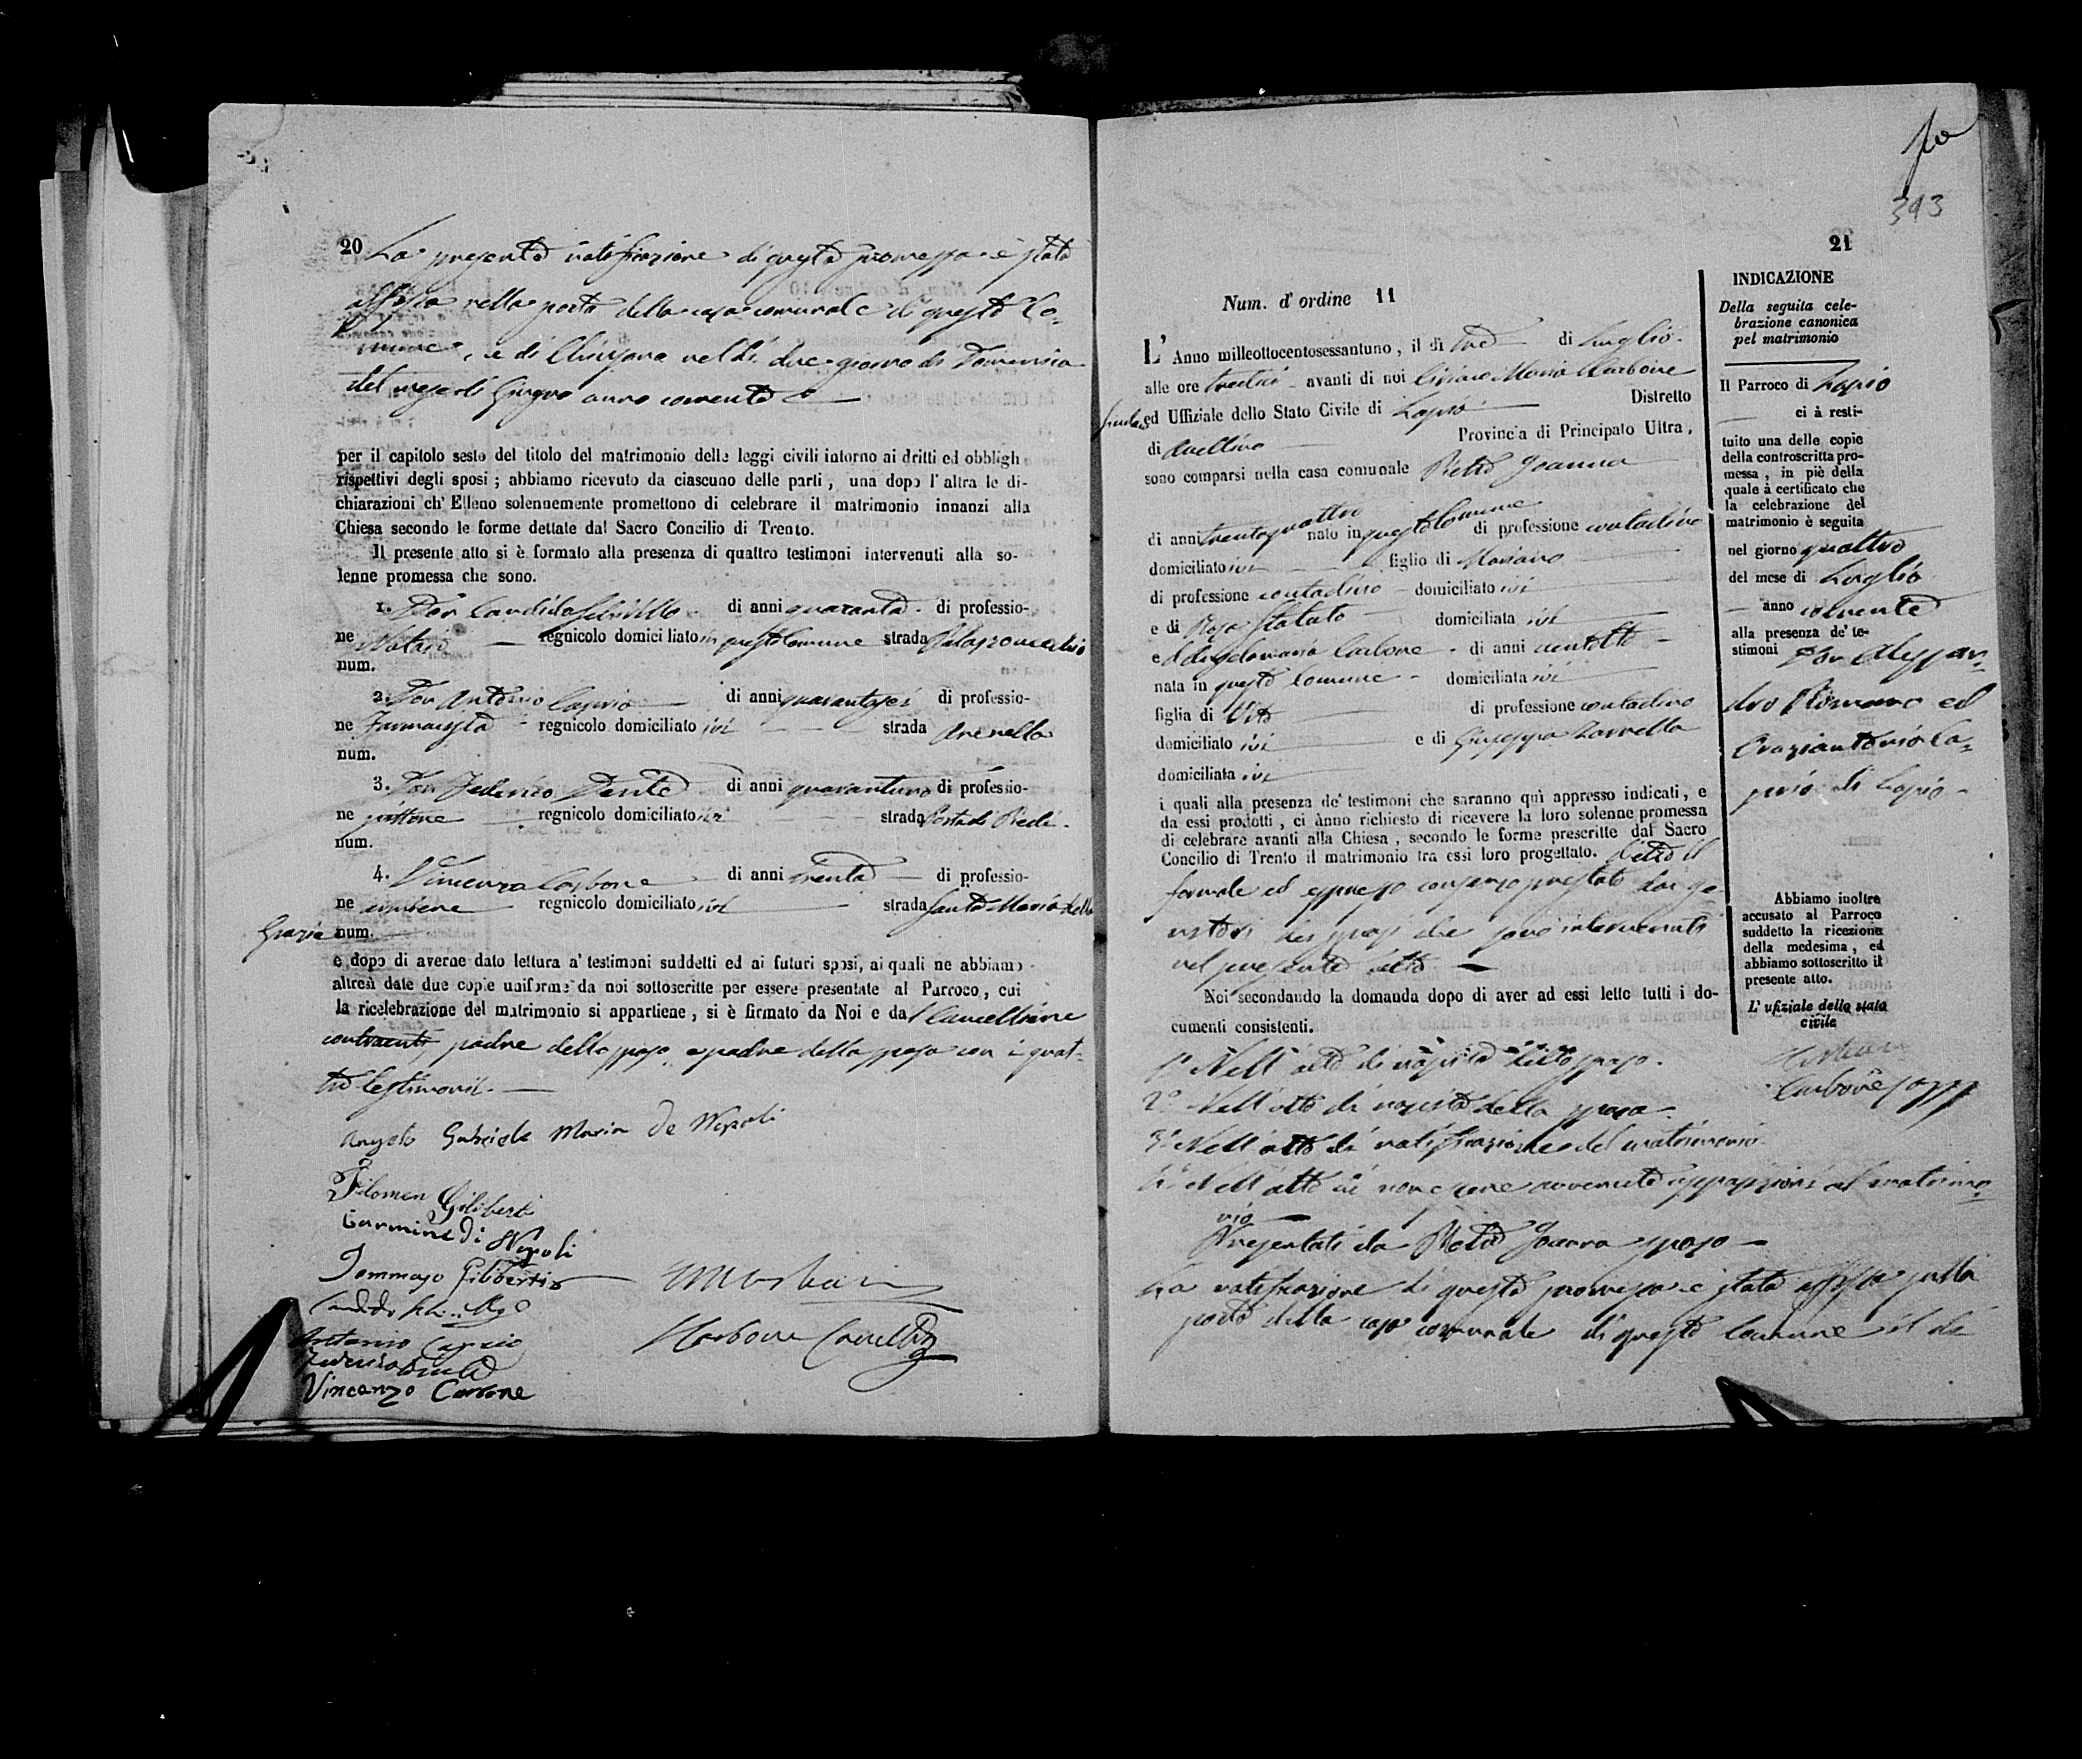 20 La presente notificazione di questa promessa è stata
affissa nella porta della casa comunale di questo Co-
mune, e di Chiusano nel dì due giorno di Domenica
del mese di Giugno anno corrente
per il capitolo sesto del titolo del matrimonio delle leggi civili intorno ai dritti ed obbligh
rispettivi degli sposi ; abbiamo ricevuto da ciascuno delle parti , una dopo l' altra le di-
chiarazioni ch' Elleno solennemente promettono di celebrare il matrimonio innanzi alla
Chiesa secondo le forme dettate dal Sacro Concilio di Trento.
Il presente atto si è formato alla presenza di quattro testimoni intervenuti alla so-
lenne promessa che sono.
1. Don Candido di anni quaranta di professio-
ne Notaro regnicolo domiciliato in questo Comune strada
num.
2. Don Antonio Caprio di anni quarantasei di professio-
ne Farmacista regnicolo domiciliato ivi strada Arenella
num.
3. Don Federico Dente di anni quarantuno di professio-
ne pittore regnicolo domiciliato ivi strada Porta di Piedi
num.
4. Vincenzo Carbone di anni trenta di professio-
ne regnicolo domiciliato ivi strada Santa Maria delle
Grazie num.
e dopo di averne dato lettura a' testimoni suddetti ed ai futuri sposi, ai quali ne abbiamo
altresì date due copie uniforme da noi sottoscritte per essere presentate al Parroco, cui
la ricelebrazione del matrimonio si appartiene, si è firmato da Noi e dal Cancelliere
contraenti padre dello sposo e padre della sposa con i quat-
tro testimonii.
Angelo Gabriele Maria de Napoli
Filomen Giliberti
Carmine di Napoli
Tommaso Giliberti
Candido
Antonio Caprio
Federico Dente
Vincenzo Carbone
Carbone
fo
393
21
Num. d' ordine 11
L' Anno milleottocentosessantuno, il dì tre di Luglio
alle ore tredici avanti di noi Ciriaco Maria Carbone
Sindaco ed Uffiziale dello Stato Civile di Lapio Distretto
di Avellino Provincia di Principato Ultra,
sono comparsi nella casa comunale Pietro Joanna
di anni trentaquattro nato in questo Comune di professione contadino
domiciliato ivi figlio di Mariano
di professione contadino domiciliato ivi
e di Rosa Statuto domiciliata ivi
e di Angelamaria Carbone di anni ventotto
nata in questo Comune domiciliata ivi
figlia di Vito di professione contadino
domiciliato ivi e di Giuseppa Zarrella
domiciliata ivi
i quali alla presenza de' testimoni che saranno quì appresso indicati, e
da essi prodotti, ci ànno richiesto di ricevere la loro solenne promessa
di celebrare avanti alla Chiesa, secondo le forme prescritte dal Sacro
Concilio di Trento il matrimonio tra essi loro progettato. Dietro il
formale ed espresso consenso prestato dai ge-
nitori dei sposi che sono intervenuti
nel presente atto
Noi secondando la domanda dopo di aver ad essi letto tutti i do-
cumenti consistenti.
1° Nell' atto di nascita dello sposo.
2° Nell' atto di nascita della sposa.
3° Nell' atto di notificazione del matrimonio
4° Nell' atto di non essere avvenute opposizioni al matrimo-
nio
Presentati da Pietro Joanna sposo
La notificazione di questa promessa è stata affissa sulla
porta della casa comunale di questo Comune il dì
INDICAZIONE
Della seguita cele-
brazione canonica
pel matrimonio
Il Parroco di Lapio
ci à resti-
tuito una delle copie
della controscritta pro-
messa, in piè della
quale à certificato che
la celebrazione del
matrimonio è seguita
nel giorno quattro
del mese di Luglio
anno corrente
alla presenza de' te-
stimoni Don Alessan-
dro Romano ed
Oraziantonio Ca-
prio di Lapio
Abbiamo inoltre
accusato al Parroco
suddetto la ricezione
della medesima, ed
abbiamo sottoscritto il
presente atto.
L' ufiziale dello stato
civile
Carbone